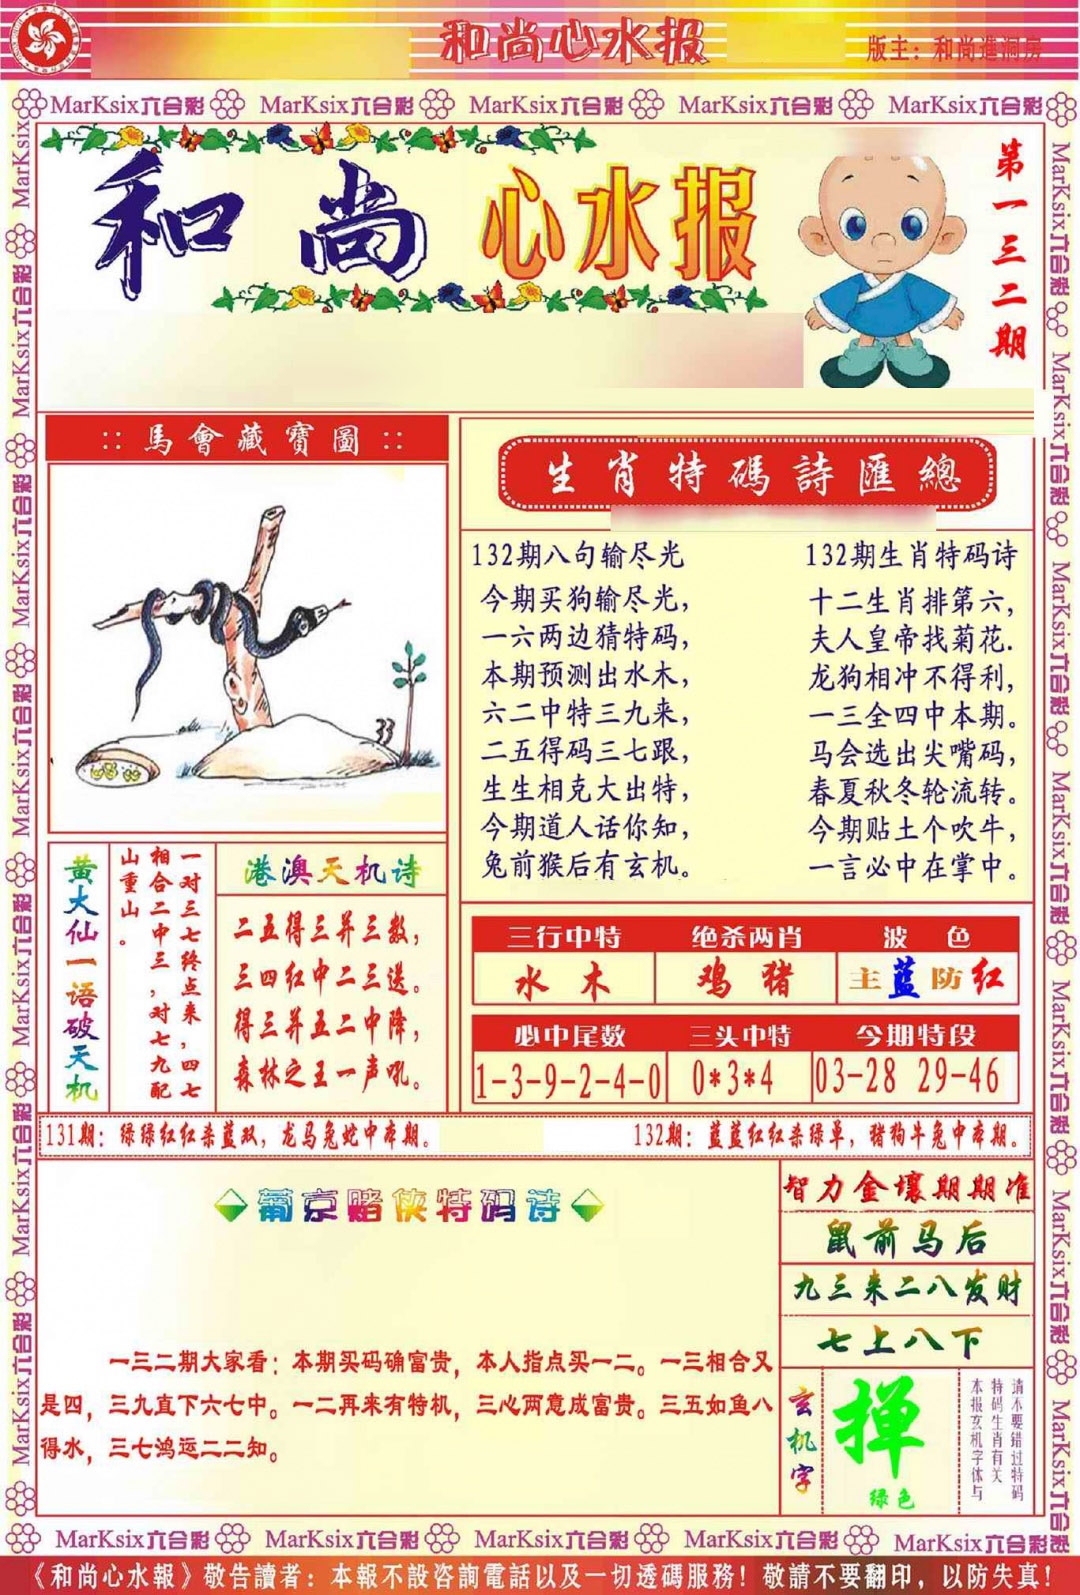 和尚心水报
版主：和尚進洞房
MarKsix六合彩 MarKsix六合彩 MarKsix六合彩 MarKsix六合彩 MarKsix六合彩
和尚心水报
第一三二期
::馬會藏寶圖::
33
生肖特碼詩匯總
132期八句输尽光
今期买狗输尽光，
一六两边猜特码，
本期预测出水木，
六二中特三九来，
二五得码三七跟，
生生相克大出特，
今期道人话你知，
兔前猴后有玄机。
132期生肖特码诗
十二生肖排第六，
夫人皇帝找菊花.
龙狗相冲不得利，
一三全四中本期。
马会选出尖嘴码，
春夏秋冬轮流转。
今期贴土个吹牛，
一言必中在掌中。
黄大仙一语破天机
一对三七终点来，四七
相合二中三，对七九配
山重山。
港澳天机诗
二五得三并三数，
三四红中二三送。
得三并五二中降，
森林之王一声吼。
三行中特 绝杀两肖 波 色
水 木 鸡 猪 主蓝防红
必中尾数 三头中特 今期特段
1-3-9-2-4-0 0*3*4 03-28 29-46
131期：绿绿红红杀蓝双，龙马兔蛇中本期。
132期：蓝蓝红红杀绿单，猪狗牛兔中本期。
葡京赌侠特码诗
一三二期大家看：本期买码确富贵，本人指点买一二。一三相合又
是四，三九直下六七中。一二再来有特机，三心两意成富贵。三五如鱼八
得水，三七鸿运二二知。
智力金壤期期准
鼠前马后
九三来二八发财
七上八下
玄机字
掸
绿色
请不要错过特码
特码生肖有关
本报玄机字体与
MarKsix六合彩 MarKsix六合彩 MarKsix六合彩 MarKsix六合彩 MarKsix六合彩
《和尚心水報》敬告讀者：本報不設咨詢電話以及一切透碼服務！敬請不要翻印，以防失真！